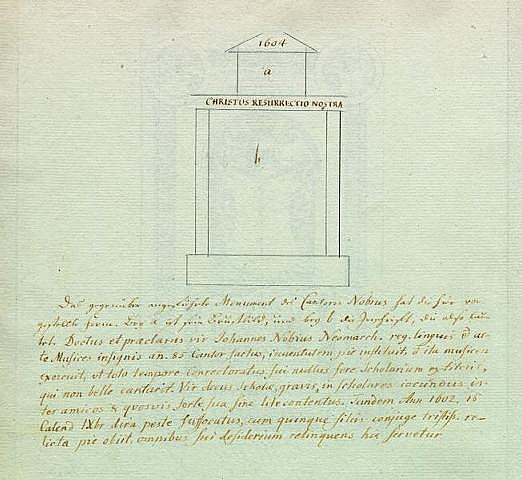 1604
a
CHRISTUS RESURRECTIO NOSTRA
b
Das gegenüber angeführte Monument des Cantors Nobius hat die hier vor
gestellte Form. Bey a ist sein Brustbild, und bey b die Innschrift, die also lau-
tet. Doctus et praeclarus vir Johannes Nobius Neomarch. reg. linguis & ar
te Musices insignis an. 85 Cantor factus, iuventutem per instituit, & ita musicen
exercuit, ut toto tempore Conrectoratus sui nullus fere Scholarium extiterit,
qui non belle cantarit. Vir decus Scholae, gravis, in scholares iocundus, in-
ter amicos & quosvis sorte sua sine lite contentus. Tandem Ann 1602, 16
Calend IXbr dira peste suffocatus, cum quinque filiis conjuge tristiss. re-
licta pie obiit, omnibus sui desiderium relinquens hic servetur